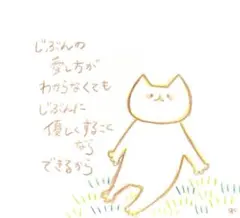 じぶんの
愛し方が
わからなくても
じぶんに
優しくすること
なら
できるから